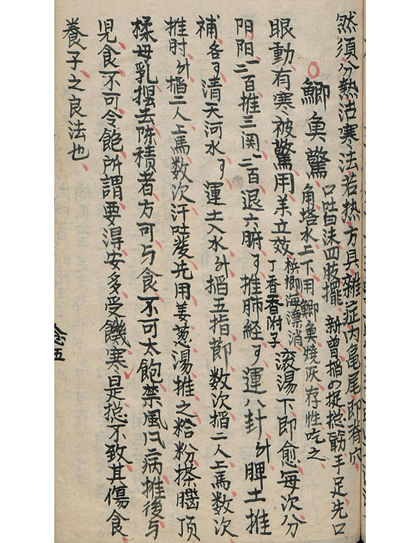 然須分熱沽寒法若热方具雜症内龟尾即脊穴
鯽魚驚
口吐白沫四肢擺 新曾掐 提捻筋手足先口
角塔水二下用鯽魚燒灰存性吃之
眼動有寒被驚用羊立效
檳榔海漂消
丁香香附子
滚湯下即愈每次分
阴阳二百推三関二百退六腑 推肺經 運八卦 脾土推
補各 清天河水 運土入水 掐五指節数次掐二人上馬数次
推肘 掐二人上馬数次汗吐發先用姜葱湯推之 粉搽腦頂
揉母乳擺去陈積者方可与食不可太飽禁風 病推後与
児食不可令飽所謂要得安多受饑寒是捻不致其傷食
養子之良法也
念五